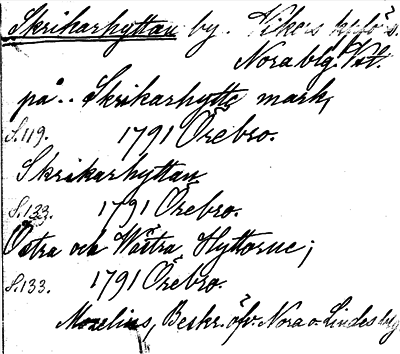 Skrikarhyttan by. Vikers
Nora blg. Vstl.
på.. Skrikarhytte mark,
S.119. 1791 Örebro.
Skrikarhyttan
S.133. 1791 Örebro.
Östra och Wästra Hyttorne;
S.133. 1791 Örebro.
Morelius, Beskr. öfv. Nora o. Lindes